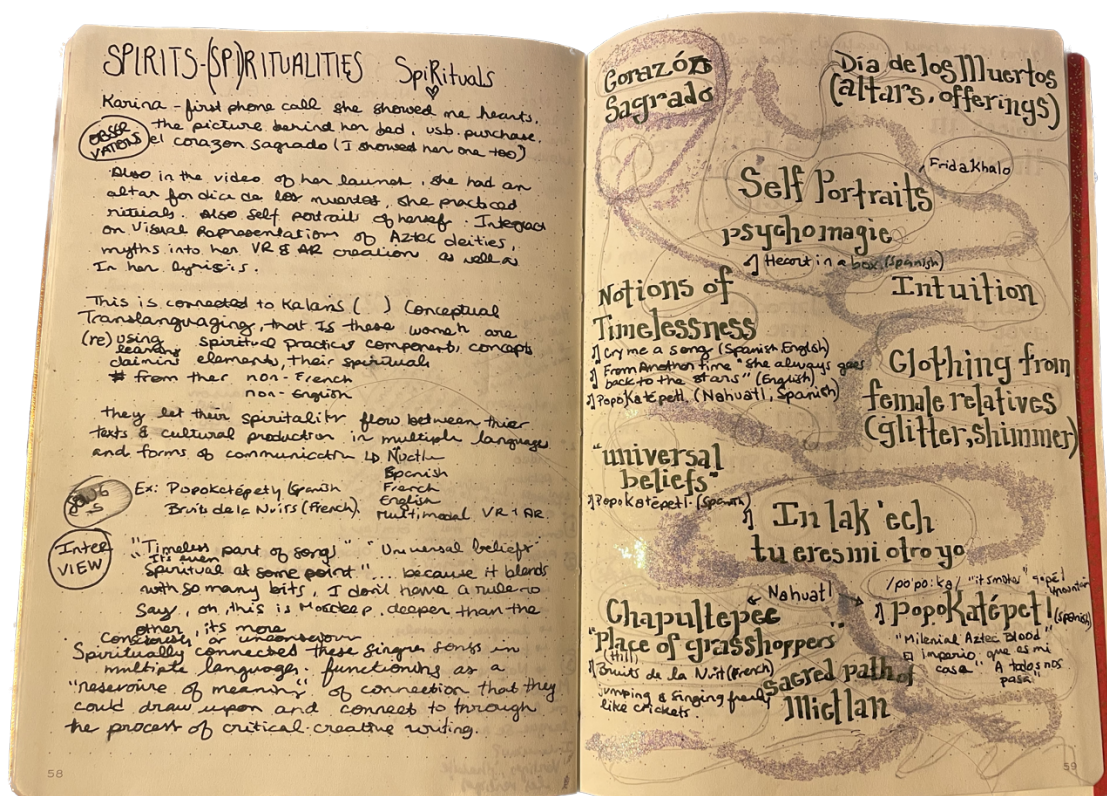 SPIRITS-(SPI)RITUALITIES SpiRituals
Karina - first phone call she showed me hearts.
the picture behind her bed, usb. purchase.
OBSER
VATIONS
el corazon sagrado (I showed her one too)
Also in the video of her launch, she had an
altar for dia de los muertos, she practiced
rituals. Also self portrait of herself.
on Visual Representations of Aztec deities,
myths into her VR & AR creation as well as
In her lyrics.
This is connected to ( ) Conceptual
Translanguaging, that Is these women are
(re) using spiritual practice component, concepts
claiming elements, their spirituals
# from their non-French
non-English
they let their spirituality flow between thier
texts & cultural production in multiple languages
and forms of communication ↳
Spanish
French
English
Multimodal VR + AR.
Ex: Popokatépetl (Spanish
Bruits de la Nuits (French)
Inter
VIEW
"Timeless part of song" "Universal beliefs"
It's even
Spiritual at some point"... because it blends
with so many bits, I don't have a rule to
Say, oh, this is deeper than the
other, its more
Consciously or unconscious
Spiritually connected these singres songs in
multiple languages. functioning as a
"reservoire of meaning" of connection that they
could draw upon and connect to through
the process of critical-creative writing.
58
Corazón
Sagrado
Dia de los Muertos
(altars, offerings)
Frida Khalo
Self Portraits
psychomagie
Heart in a box (Spanish)
Notions of
Timelessness
Cry me a song (Spanish, English)
From Another time "She always goes
back to the stars" (English)
Popokatépetl (Nahuatl, Spanish)
Intuition
Clothing from
female relatives
(glitter, shimmer)
"universal
beliefs"
Popokatépetl (Spanish)
In lak'ech
tu eres mi otro yo
Nahuatl
/po'po:ka/ "it smokes" tepētl
mountain
Popokatépetl (Spanish)
"Milenial Aztec Blood"
El imperio que es mi
casa" "A todos nos
pasa"
Chapultepec
"Place of grasshoppers"
(Hill)
Bruits de la Nuit (French)
jumping & singing freely
like crickets
sacred path of
Mictlan
59